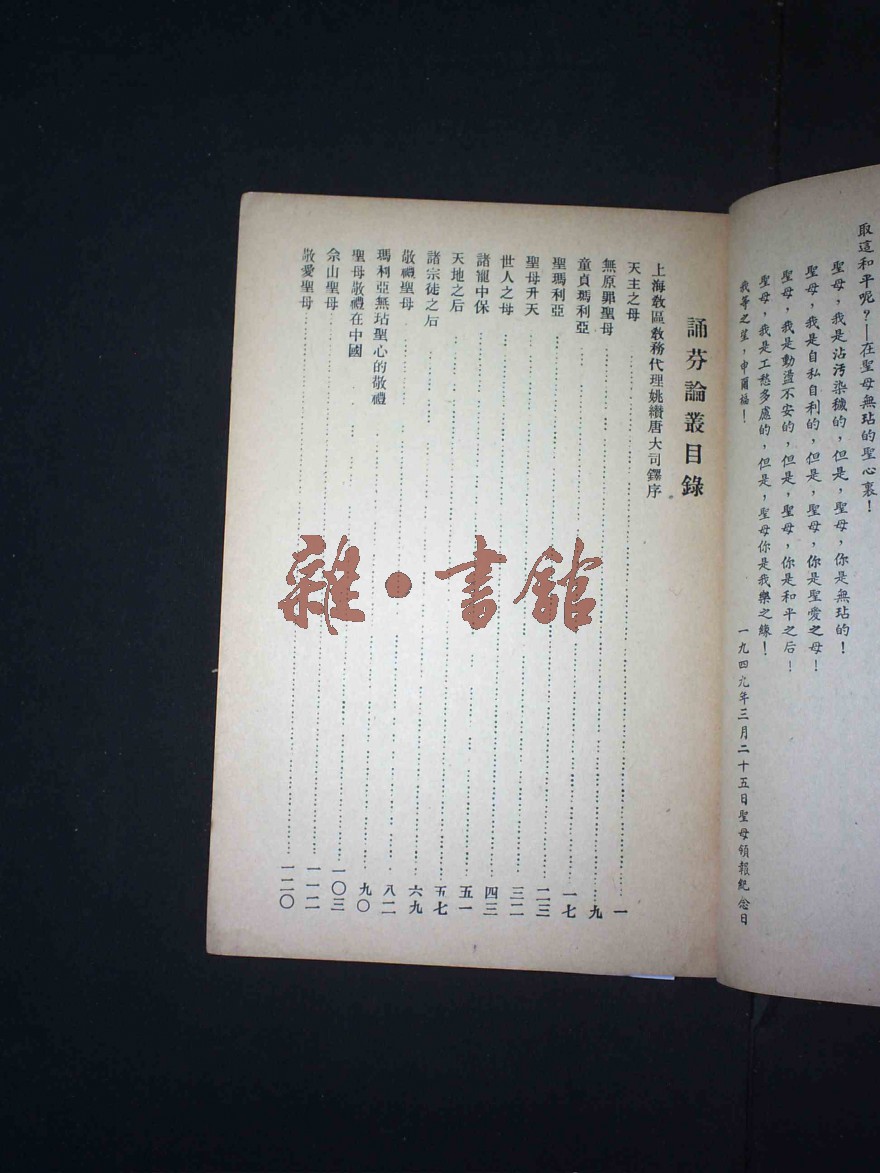 取這和平呢?—在聖母無玷的聖心裏!
聖母,我是沾污染穢的,但是,聖母,你是無玷的!
聖母,我是自私自利的,但是,聖母,你是聖愛之母!
聖母,我是動盪不安的,但是,聖母,你是和平之后!
聖母,我是工愁多慮的,但是,聖母你是我樂之緣!
我等之星,申爾福!
一九四九年三月二十五日聖母領報紀念日
誦芬論叢目錄
上海教區教務代理姚纘唐大司鐸序
天主之母……一
無原罪聖母……九
童貞瑪利亞……一七
聖瑪利亞……二三
聖母升天……三二
世人之母……四三
諸寵中保……五一
天地之后……五七
諸宗徒之后……六九
敬禮聖母……八二
瑪利亞無玷聖心的敬禮……九〇
聖母敬禮在中國……一〇三
佘山聖母……一一二
敬愛聖母……一二〇
雜·書館